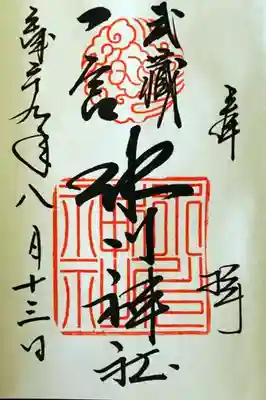 奉拝
武藏
一宮
氷川神社
平成二十九年八月十三日